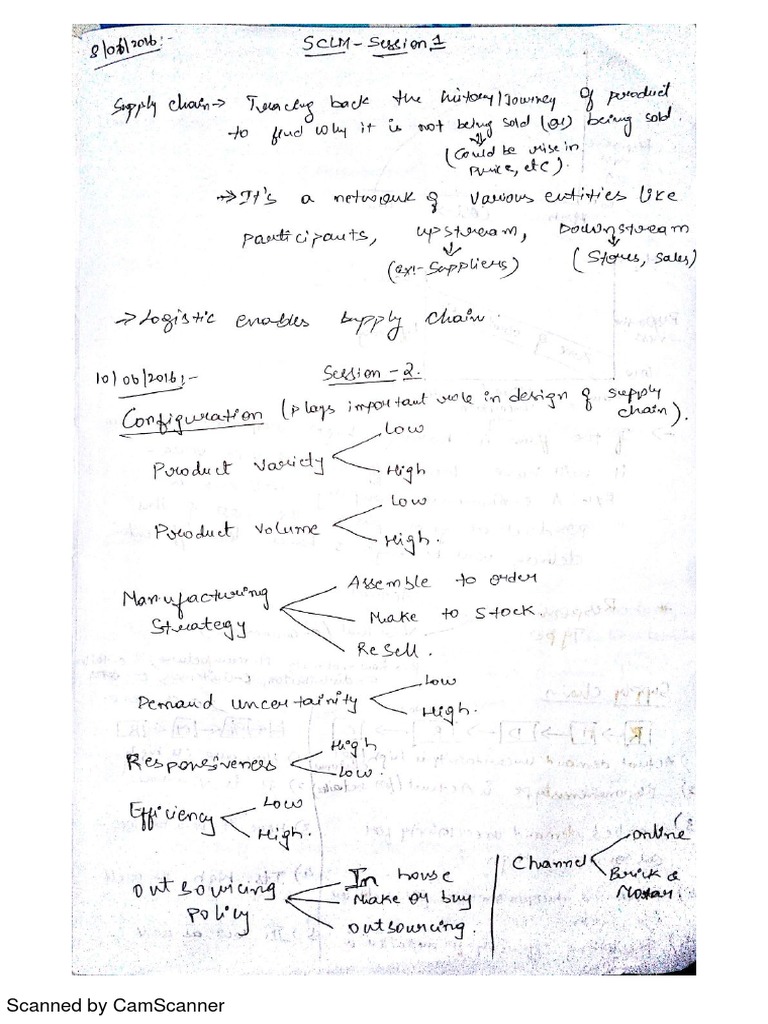 8/06/2016:-
SCLM - Session 1
Supply chain → Tracing back the history/Journey of product
to find why it is not being sold (or) being sold.
(Could be rise in
price, etc).
→ It's a network of various entities like
participants, upstream, Downstream
(ex:- Suppliers) (Stores, sales)
→ Logistic enables supply chain.
10/06/2016:-
Session - 2.
Configuration (plays important role in design of supply
chain).
Product variety
Low
High
Product volume
Low
High.
Manufacturing
Strategy
Assemble to order
Make to Stock.
ReSell.
Demand uncertainity
Low
High.
Responsiveness
High
Low.
Efficiency
Low
High.
Outsourcing
Policy
In house
Make or buy
Outsourcing.
Channel
online
Brick &
Motar.
Scanned by CamScanner